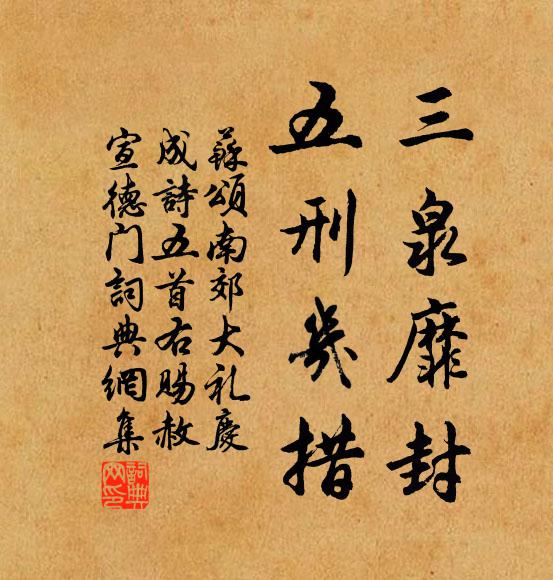 三泉靡封
五刑幾措
蘇頌南郊大礼慶
成詩五首右賜赦
宣德门詞典網集
詞典
网印